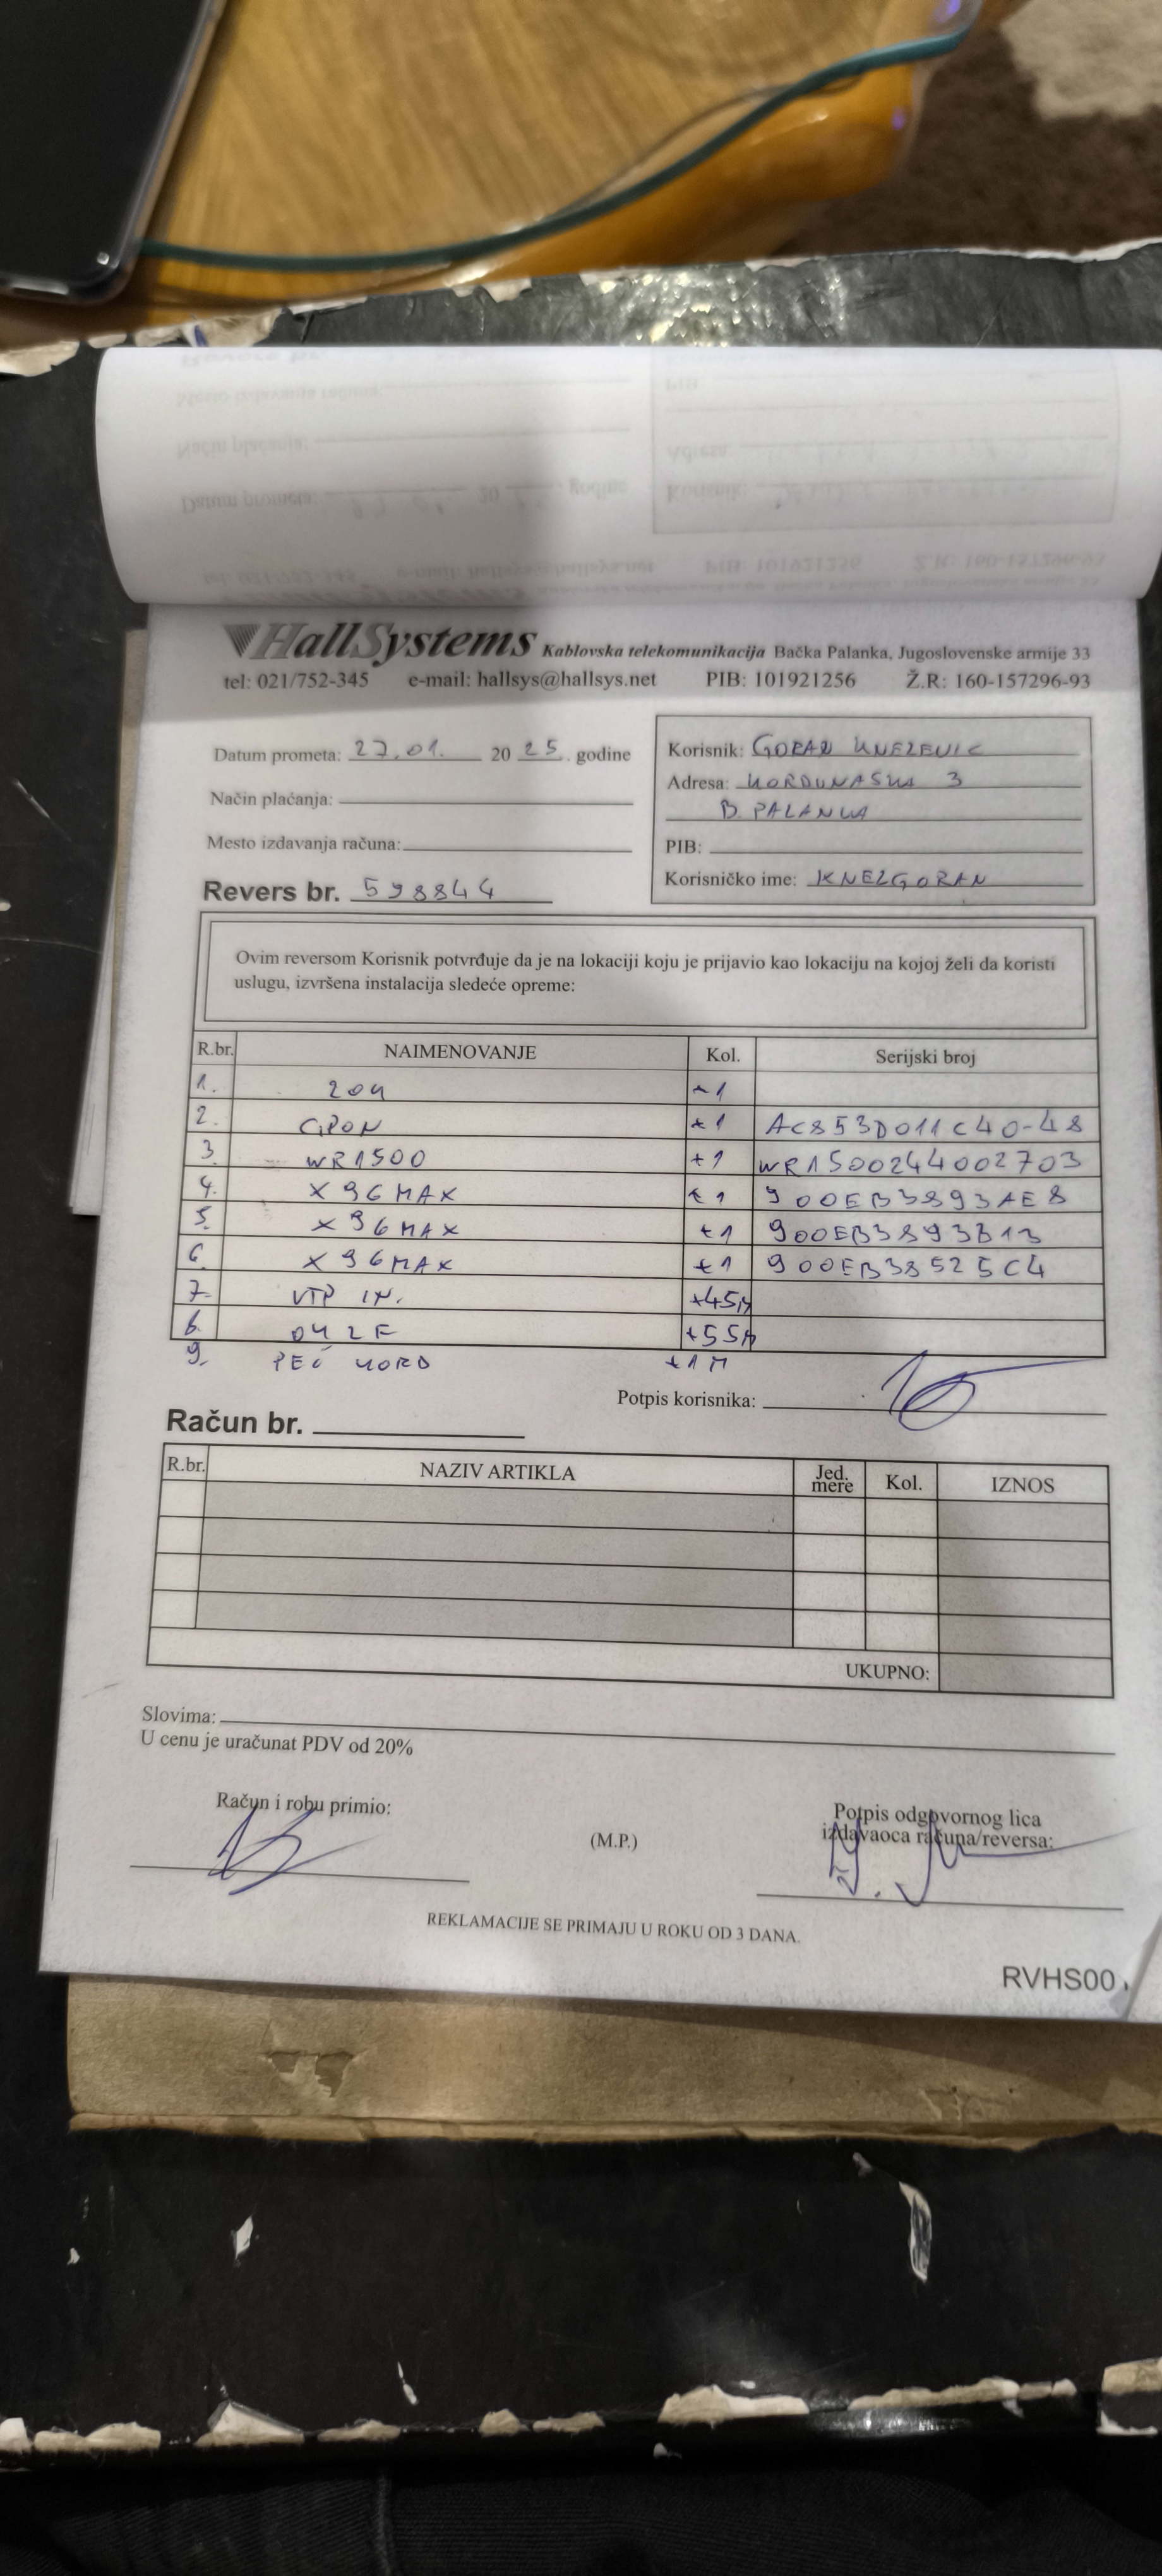 HallSystems Kablovska telekomunikacija Bačka Palanka, Jugoslovenske armije 33
tel: 021/752-345 e-mail: hallsys@hallsys.net PIB: 101921256 Ž.R: 160-157296-93
Datum prometa: 27.01. 2025. godine
Način plaćanja:
Mesto izdavanja računa:
Revers br. 598844
Korisnik: GORAN KNEZEVIC
Adresa: KORDUNASKA 3
B. PALANKA
PIB:
Korisničko ime: KNEZGORAN
Ovim reversom Korisnik potvrđuje da je na lokaciji koju je prijavio kao lokaciju na kojoj želi da koristi
uslugu, izvršena instalacija sledeće opreme:
R.br. NAIMENOVANJE Kol. Serijski broj
1. 204 -1
2. GPON +1 AC853D011C40-48
3. WR1500 +1 WR1500244002703
4. X96MAX +1 900EB3893AE8
5. X96MAX +1 900EB3893B13
6. X96MAX +1 900EB38525C4
7. UTP IN. +45M
8. OK 2F +55M
9. PEČ KORD +1M
Potpis korisnika:
Račun br.
R.br. NAZIV ARTIKLA Jed. mere Kol. IZNOS
UKUPNO:
Slovima:
U cenu je uračunat PDV od 20%
Račun i robu primio:
(M.P.)
Potpis odgovornog lica
izdavaoca računa/reversa:
REKLAMACIJE SE PRIMAJU U ROKU OD 3 DANA.
RVHS00